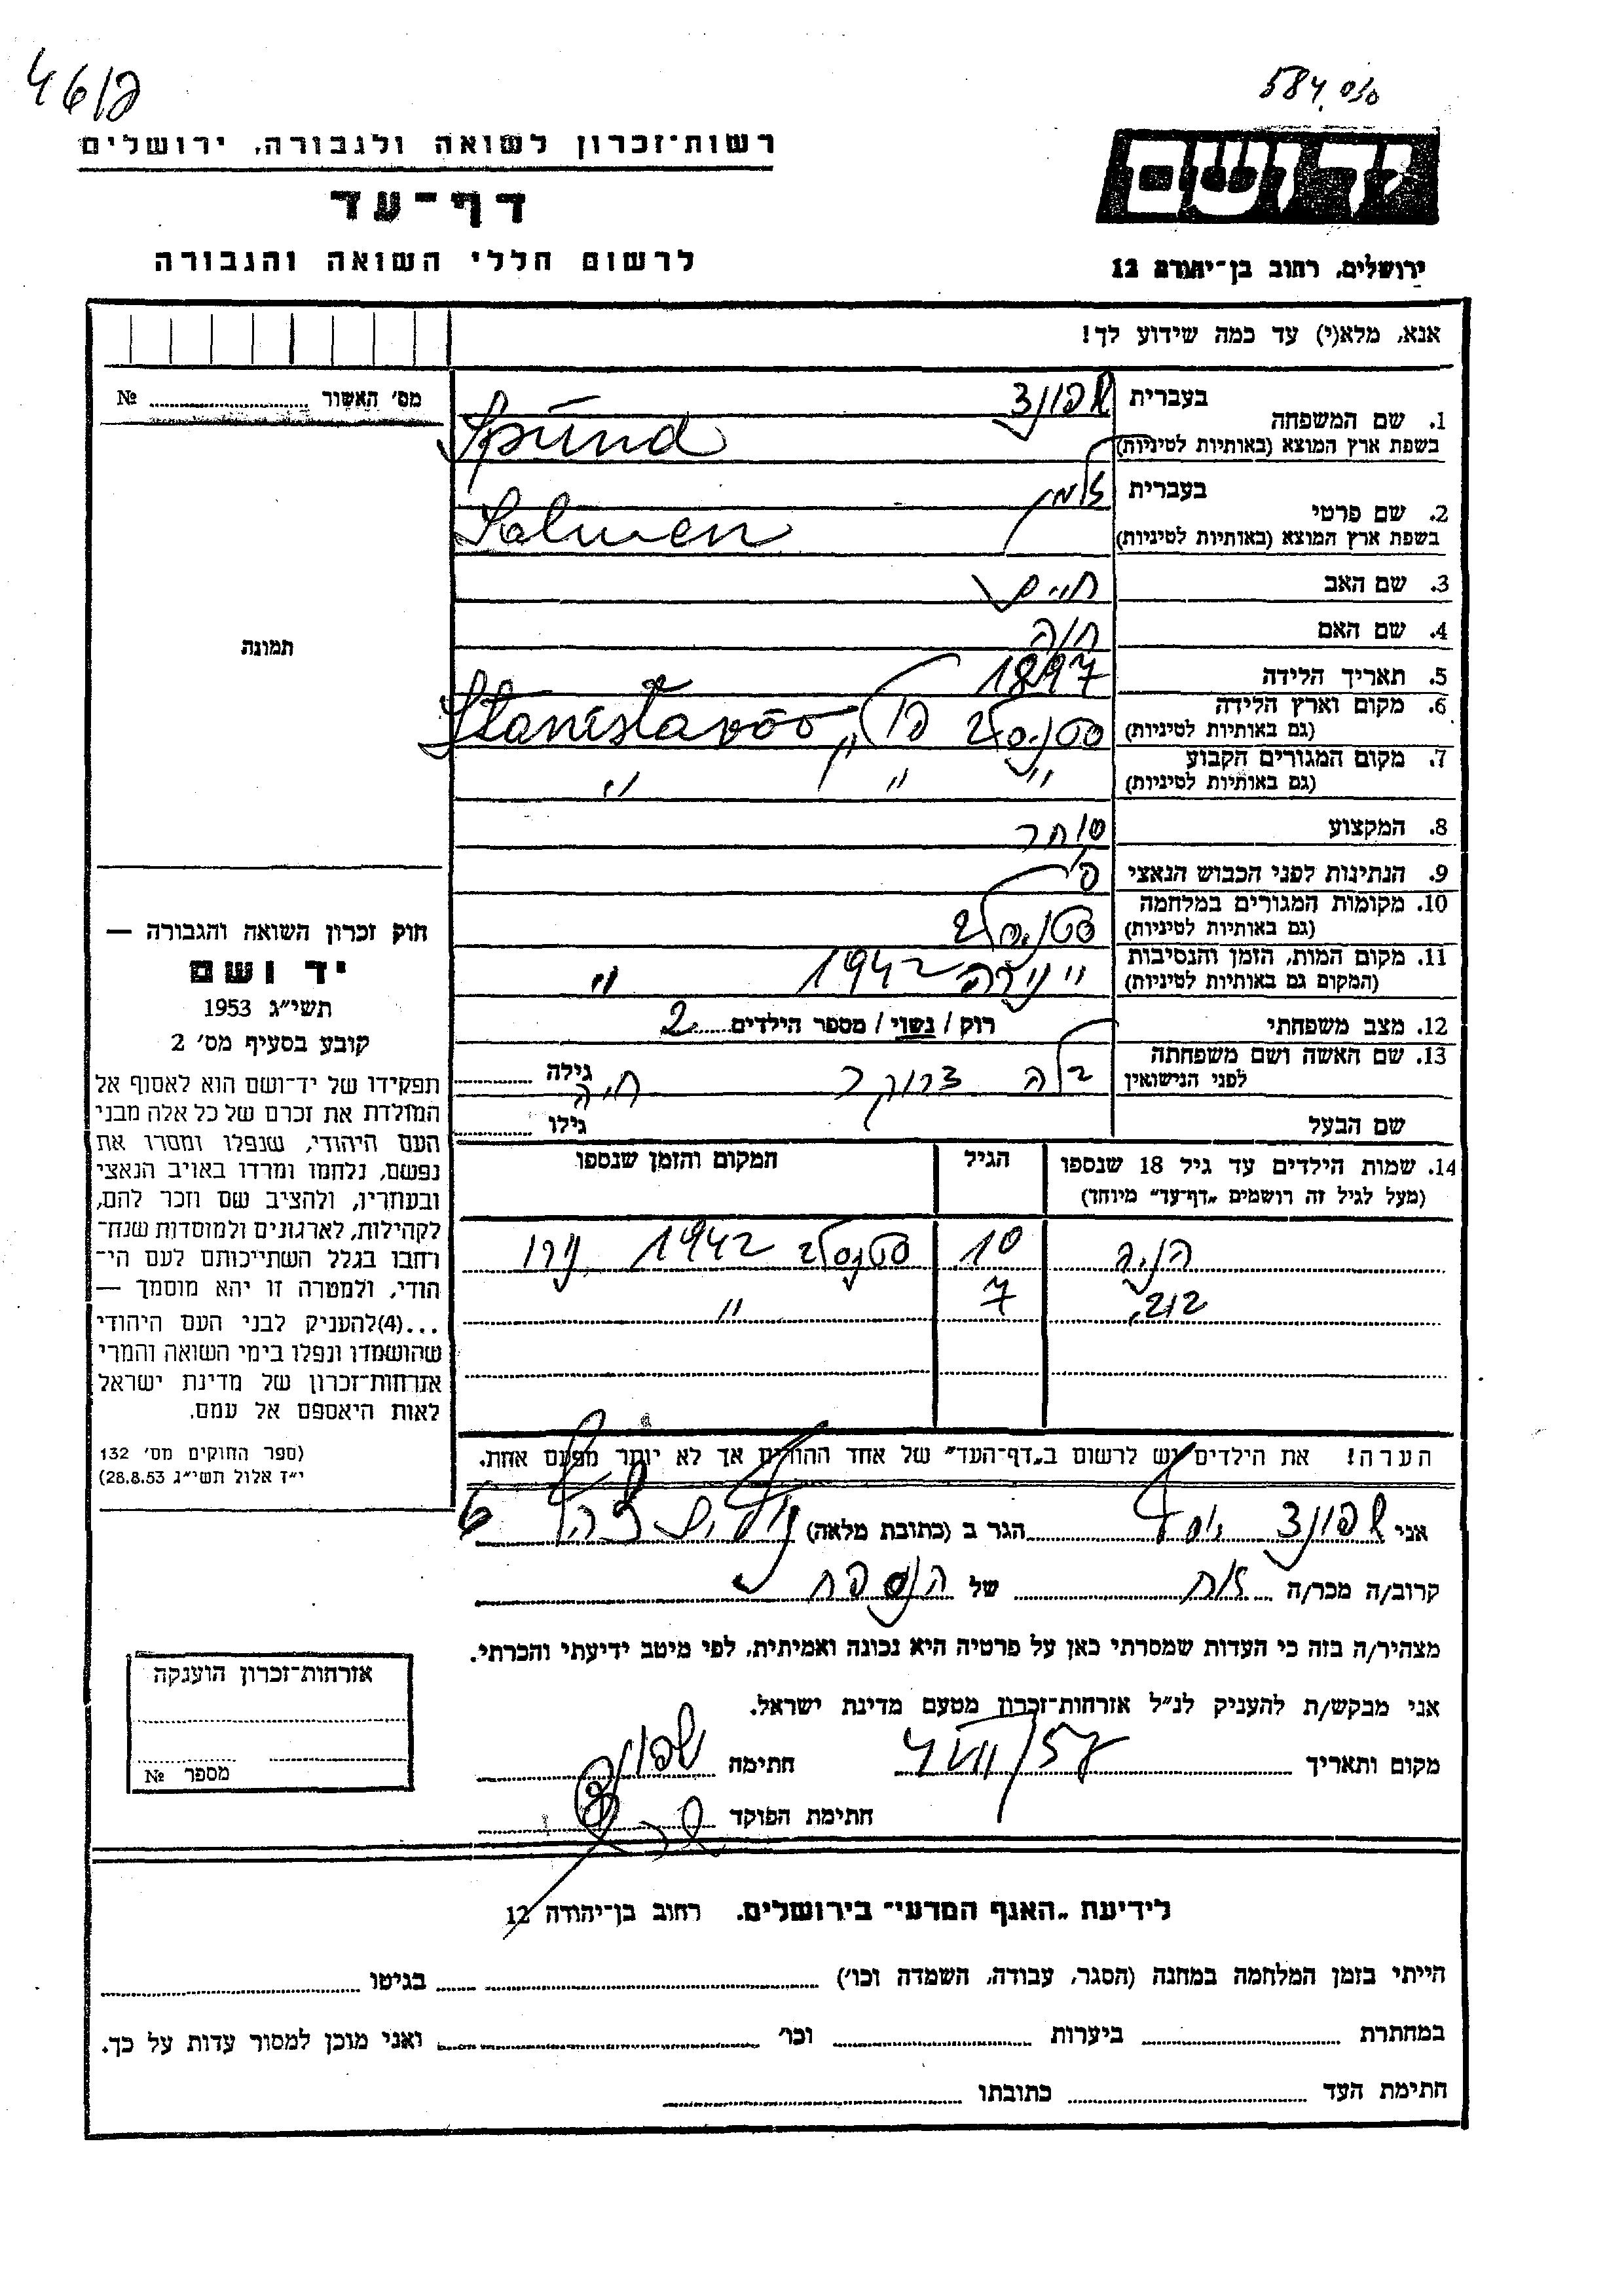 46/ק
584
רשות־זכרון לשואה ולגבורה, ירושלים
דף־עד
לרשום חללי השואה והגבורה
יד ושם
ירושלים, רחוב בן־יהודה 12
אנא, מלא(י) עד כמה שידוע לך!
מס׳ האשור № 
תמונה
1. שם המשפחה בעברית שפונד
בשפת ארץ המוצא (באותיות לטיניות) Spünd
2. שם פרטי בעברית זלמן
בשפת ארץ המוצא (באותיות לטיניות) Salmen
3. שם האב חיים
4. שם האם חיה
5. תאריך הלידה 1897
6. מקום וארץ הלידה (גם באותיות לטיניות) סטניסלב פולין Stanisłavôo
7. מקום המגורים הקבוע (גם באותיות לטיניות) " " "
8. המקצוע סוחר
9. הנתינות לפני הכבוש הנאצי פול
10. מקומות המגורים במלחמה (גם באותיות לטיניות) סטניסלב
11. מקום המות, הזמן והנסיבות (המקום גם באותיות לטיניות) " 1942 "
12. מצב משפחתי רוק / נשוי / מספר הילדים 2
13. שם האשה ושם משפחתה לפני הנישואין בלה חיה גילה
שם הבעל גילו
14. שמות הילדים עד גיל 18 שנספו (מעל לגיל זה רושמים „דף־עד" מיוחד) הגיל המקום והזמן שנספו
10 סטניסלב 1942
7 "
הערה! את הילדים יש לרשום ב„דף־העד" של אחד ההורים אך לא יותר מפעם אחת.
אני שפונד יוסף הגר ב (כתובת מלאה) 6
קרוב/ה מכר/ה אח של הנספה
מצהיר/ה בזה כי העדות שמסרתי כאן על פרטיה היא נכונה ואמיתית, לפי מיטב ידיעתי והכרתי.
אני מבקש/ת להעניק לנ״ל אזרחות־זכרון מטעם מדינת ישראל.
מקום ותאריך חתימה שפונד
חתימת הפוקד
חוק זכרון השואה והגבורה —
יד ושם
תשי״ג 1953
קובע בסעיף מס׳ 2
תפקידו של יד־ושם הוא לאסוף אל
המולדת את זכרם של כל אלה מבני
העם היהודי, שנפלו ומסרו את
נפשם, נלחמו ומרדו באויב הנאצי
ובעוזריו, ולהציב שם וזכר להם,
לקהילות, לארגונים ולמוסדות שנח־
רחבו בגלל השתייכותם לעם הי־
הודי, ולמטרה זו יהא מוסמך —
...(4)להעניק לבני העם היהודי
שהושמדו ונפלו בימי השואה והמרי
אזרחות־זכרון של מדינת ישראל
לאות היאספם אל עמם.
(ספר החוקים מס׳ 132
י״ז אלול תשי״ג 28.8.53)
אזרחות־זכרון הוענקה
מספר №
לידיעת „האגף המדעי״ בירושלים, רחוב בן־יהודה 12
הייתי בזמן המלחמה במחנה (הסגר, עבודה, השמדה וכו׳) בגיטו
במחתרת ביערות וכו׳ ואני מוכן למסור עדות על כך.
חתימת העד כתובתו